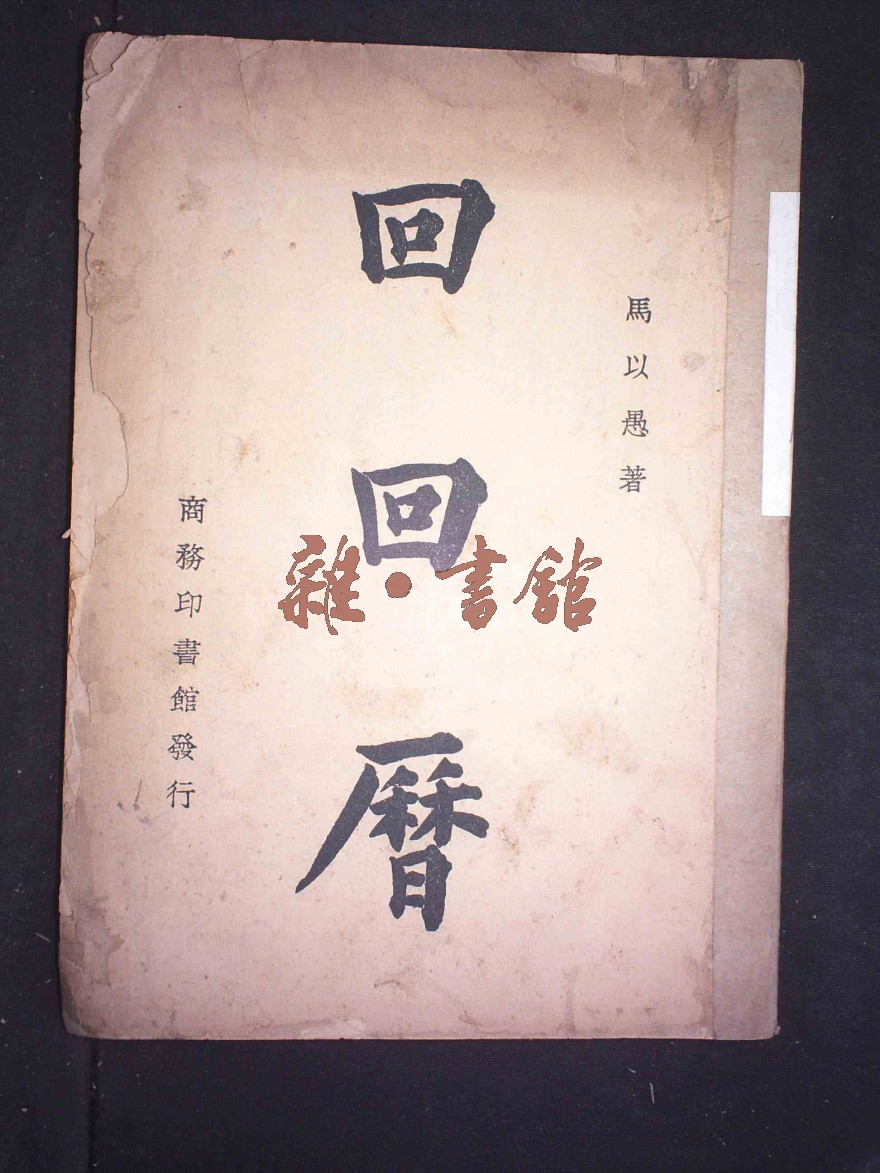 馬以愚著
回回曆
商務印書館發行
雜·書館